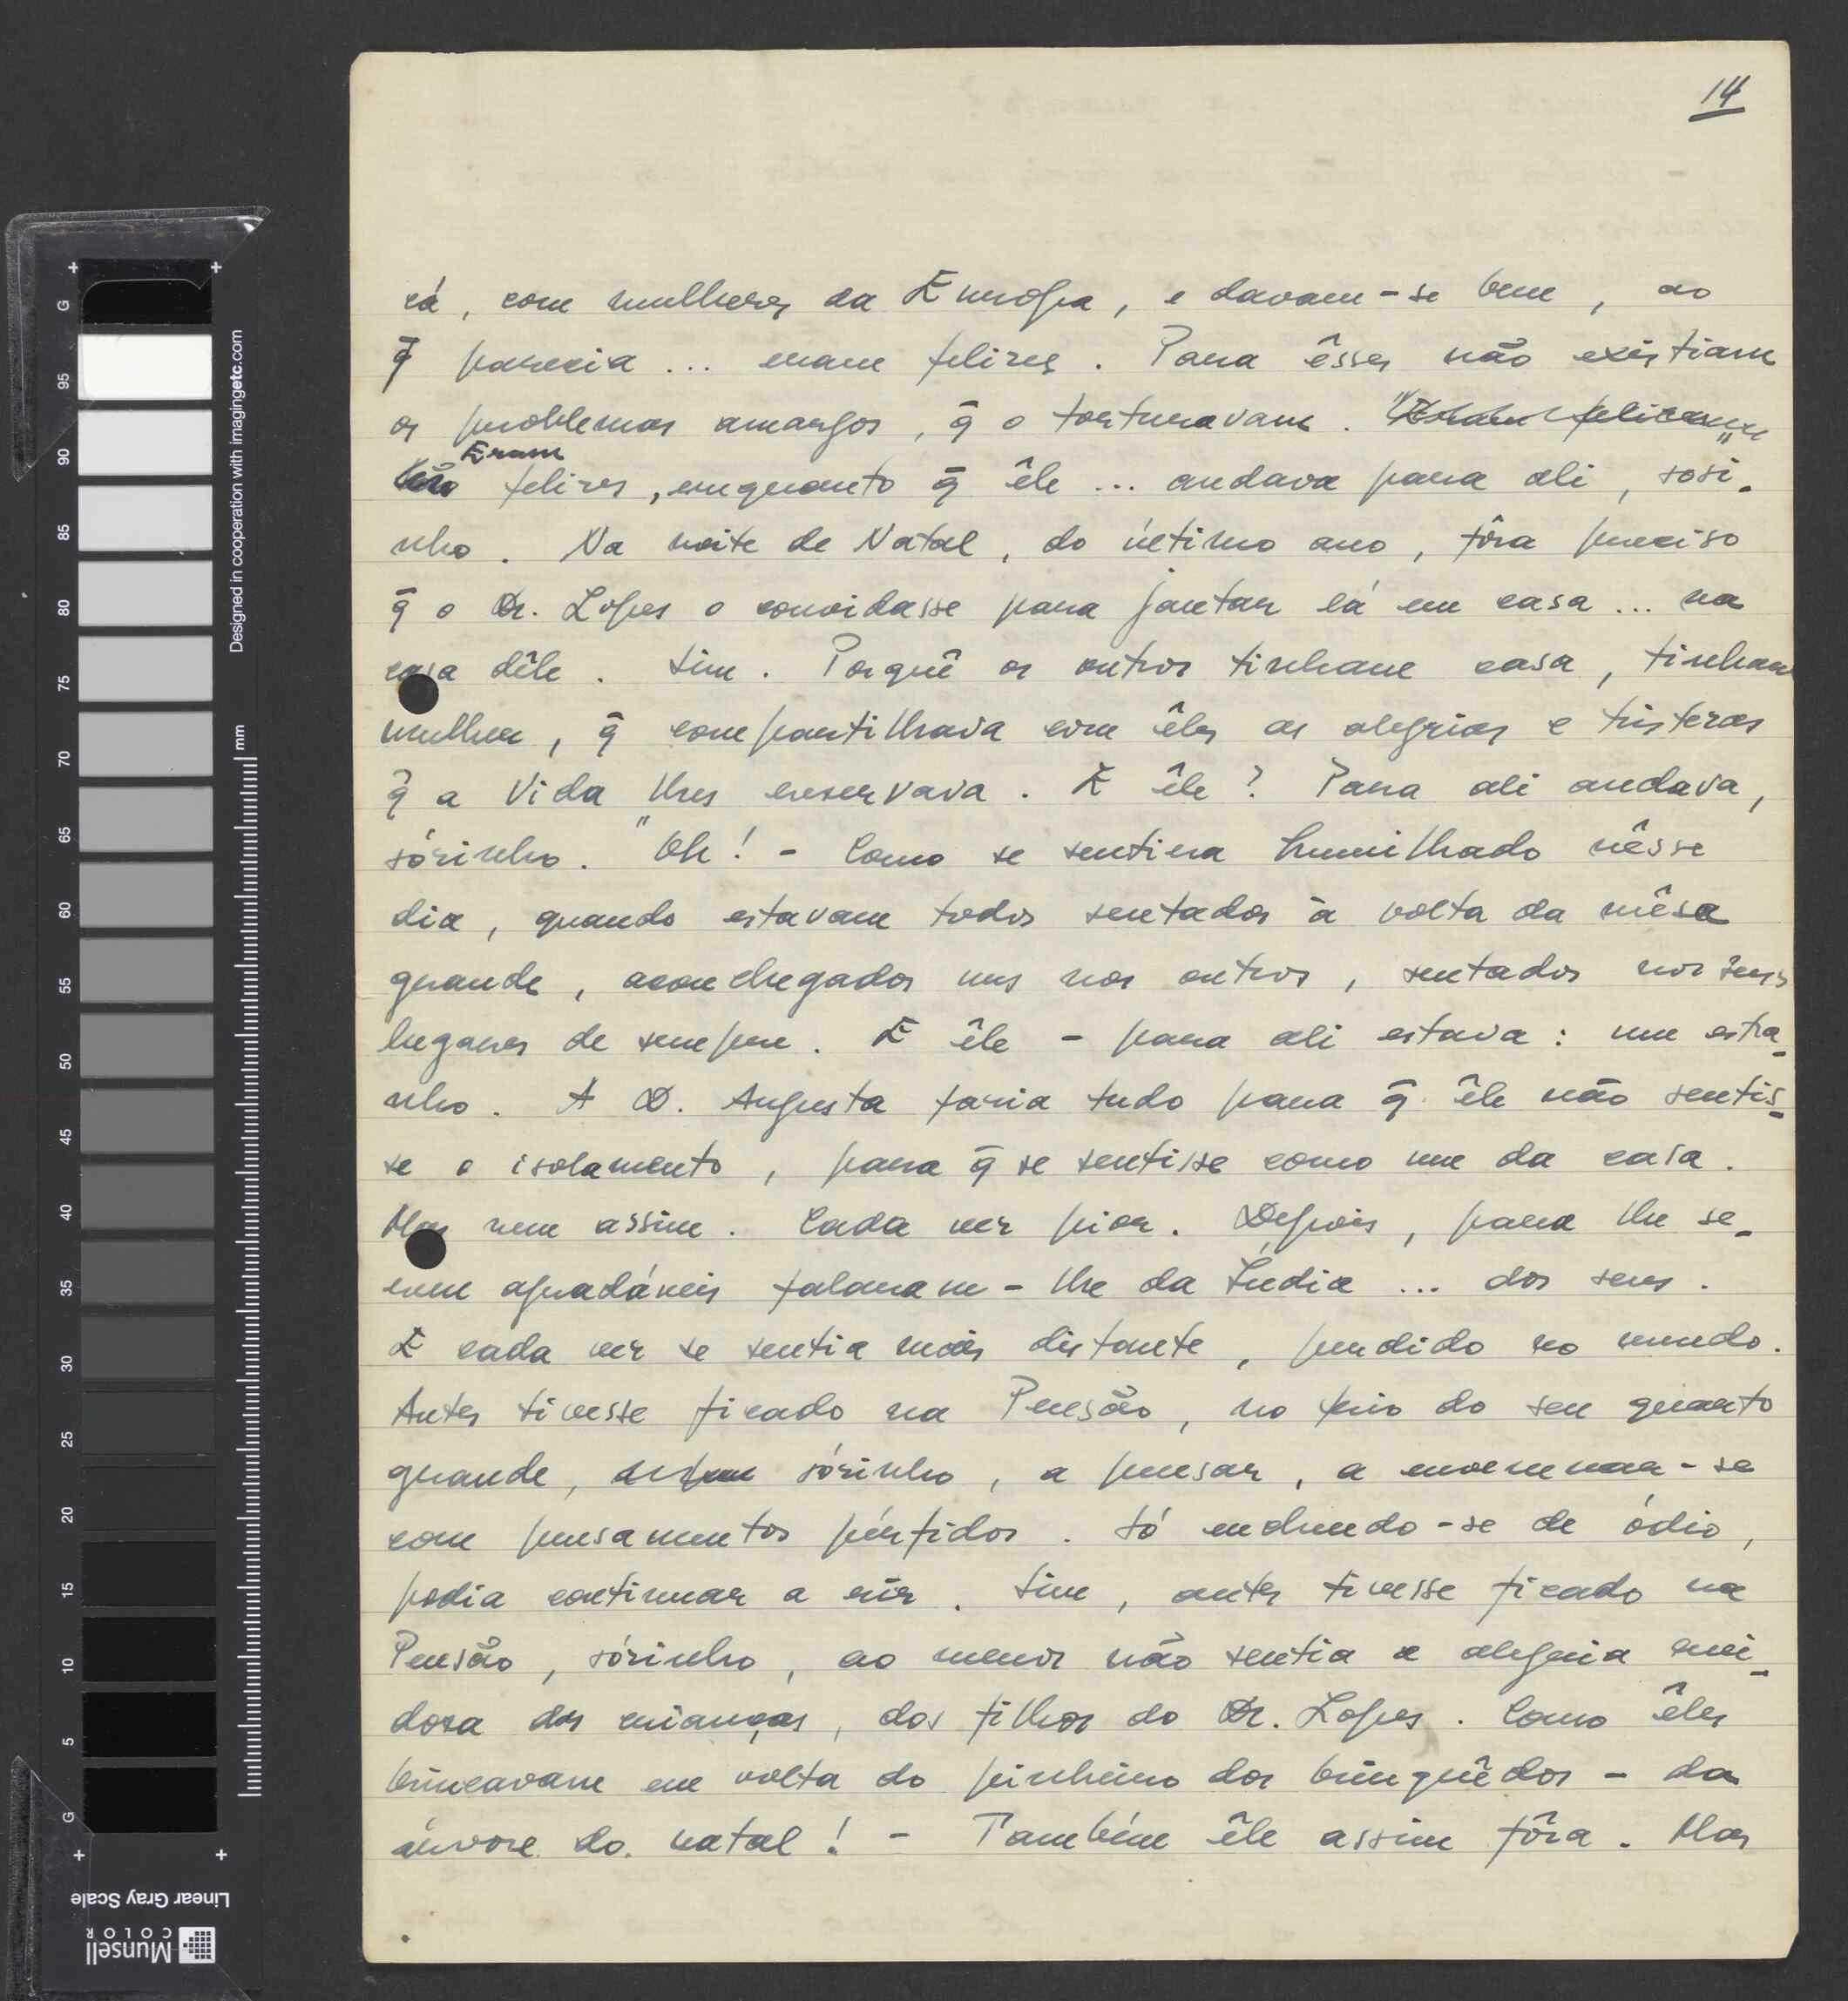 14
cá, com mulheres da Europa, e davam-se bem, ao
q̃ parecia ... eram felizes. Para êsses não existiam
os problemas amargos, q̃ o torturavam.
Eram
felizes, enquanto q̃ êle ... andava para ali, sosi-
nho. Na noite de Natal, do último ano, fôra preciso
q̃ o Dr. Lopes o convidasse para jantar lá em casa ... na
casa dêle. Sim. Porquê os outros tinham casa, tinham
mulher, q̃ compartilhava com êles as alegrias e tristezas
q̃ a Vida lhes reservava. E êle? Para ali andava,
sózinho. "Oh! - Como se sentira humilhado nêsse
dia, quando estavam todos sentados à volta da mêsa
grande, aconchegados uns nos outros, sentados nos seus
lugares de sempre. E êle - para ali estava: um estra-
nho. A D. Augusta fazia tudo para q̃ êle não sentis-
se o isolamento, para q̃ se sentisse como um da casa.
Mas nem assim. Cada vez pior. Depois, para lhe se-
rem agradáveis falaram-lhe da Índia ... dos seus.
E cada vez se sentia mais distante, perdido no mundo.
Antes tivesse ficado na Pensão, no frio do seu quarto
grande, sózinho, a pensar, a envenenar-se
com pensamentos pérfidos. Só enchendo-se de ódio,
podia continuar a rir. Sim, antes tivesse ficado na
Pensão, sózinho, ao menos não sentia a alegria rui-
dosa das crianças, dos filhos do Dr. Lopes. Como êles
brincavam em volta do pinheiro dos brinquêdos - da
árvore do natal! - Também êle assim fôra. Mas
Designed in cooperation with imagingetc.com
mm
G 95 90 85 80 75 70 65 60 55 50 45 40 35 30 25 20 15 10 5 G
Linear Gray Scale
Munsell
COLOR